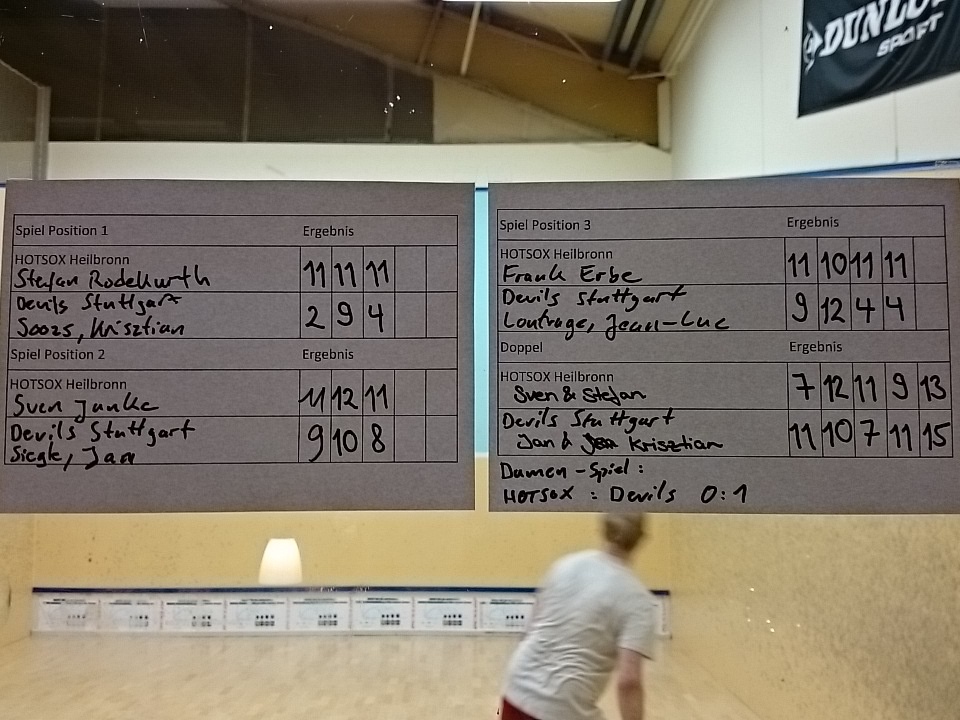 DUNLOP
SPORT
Spiel Position 1 Ergebnis
HOTSOX Heilbronn
Stefan Rodekurth 11 11 11
Devils Stuttgart
Soozs, Krisztian 2 9 4
Spiel Position 2 Ergebnis
HOTSOX Heilbronn
Sven Junke 11 12 11
Devils Stuttgart
Siegle, Jan 9 10 8
Spiel Position 3 Ergebnis
HOTSOX Heilbronn
Frank Erbe 11 10 11 11
Devils Stuttgart
Loutrage, Jean-Luc 9 12 4 4
Doppel Ergebnis
HOTSOX Heilbronn
Sven & Stefan 7 12 11 9 13
Devils Stuttgart
Jan & Krisztian 11 10 7 11 15
Damen-Spiel:
HOTSOX : Devils 0:1